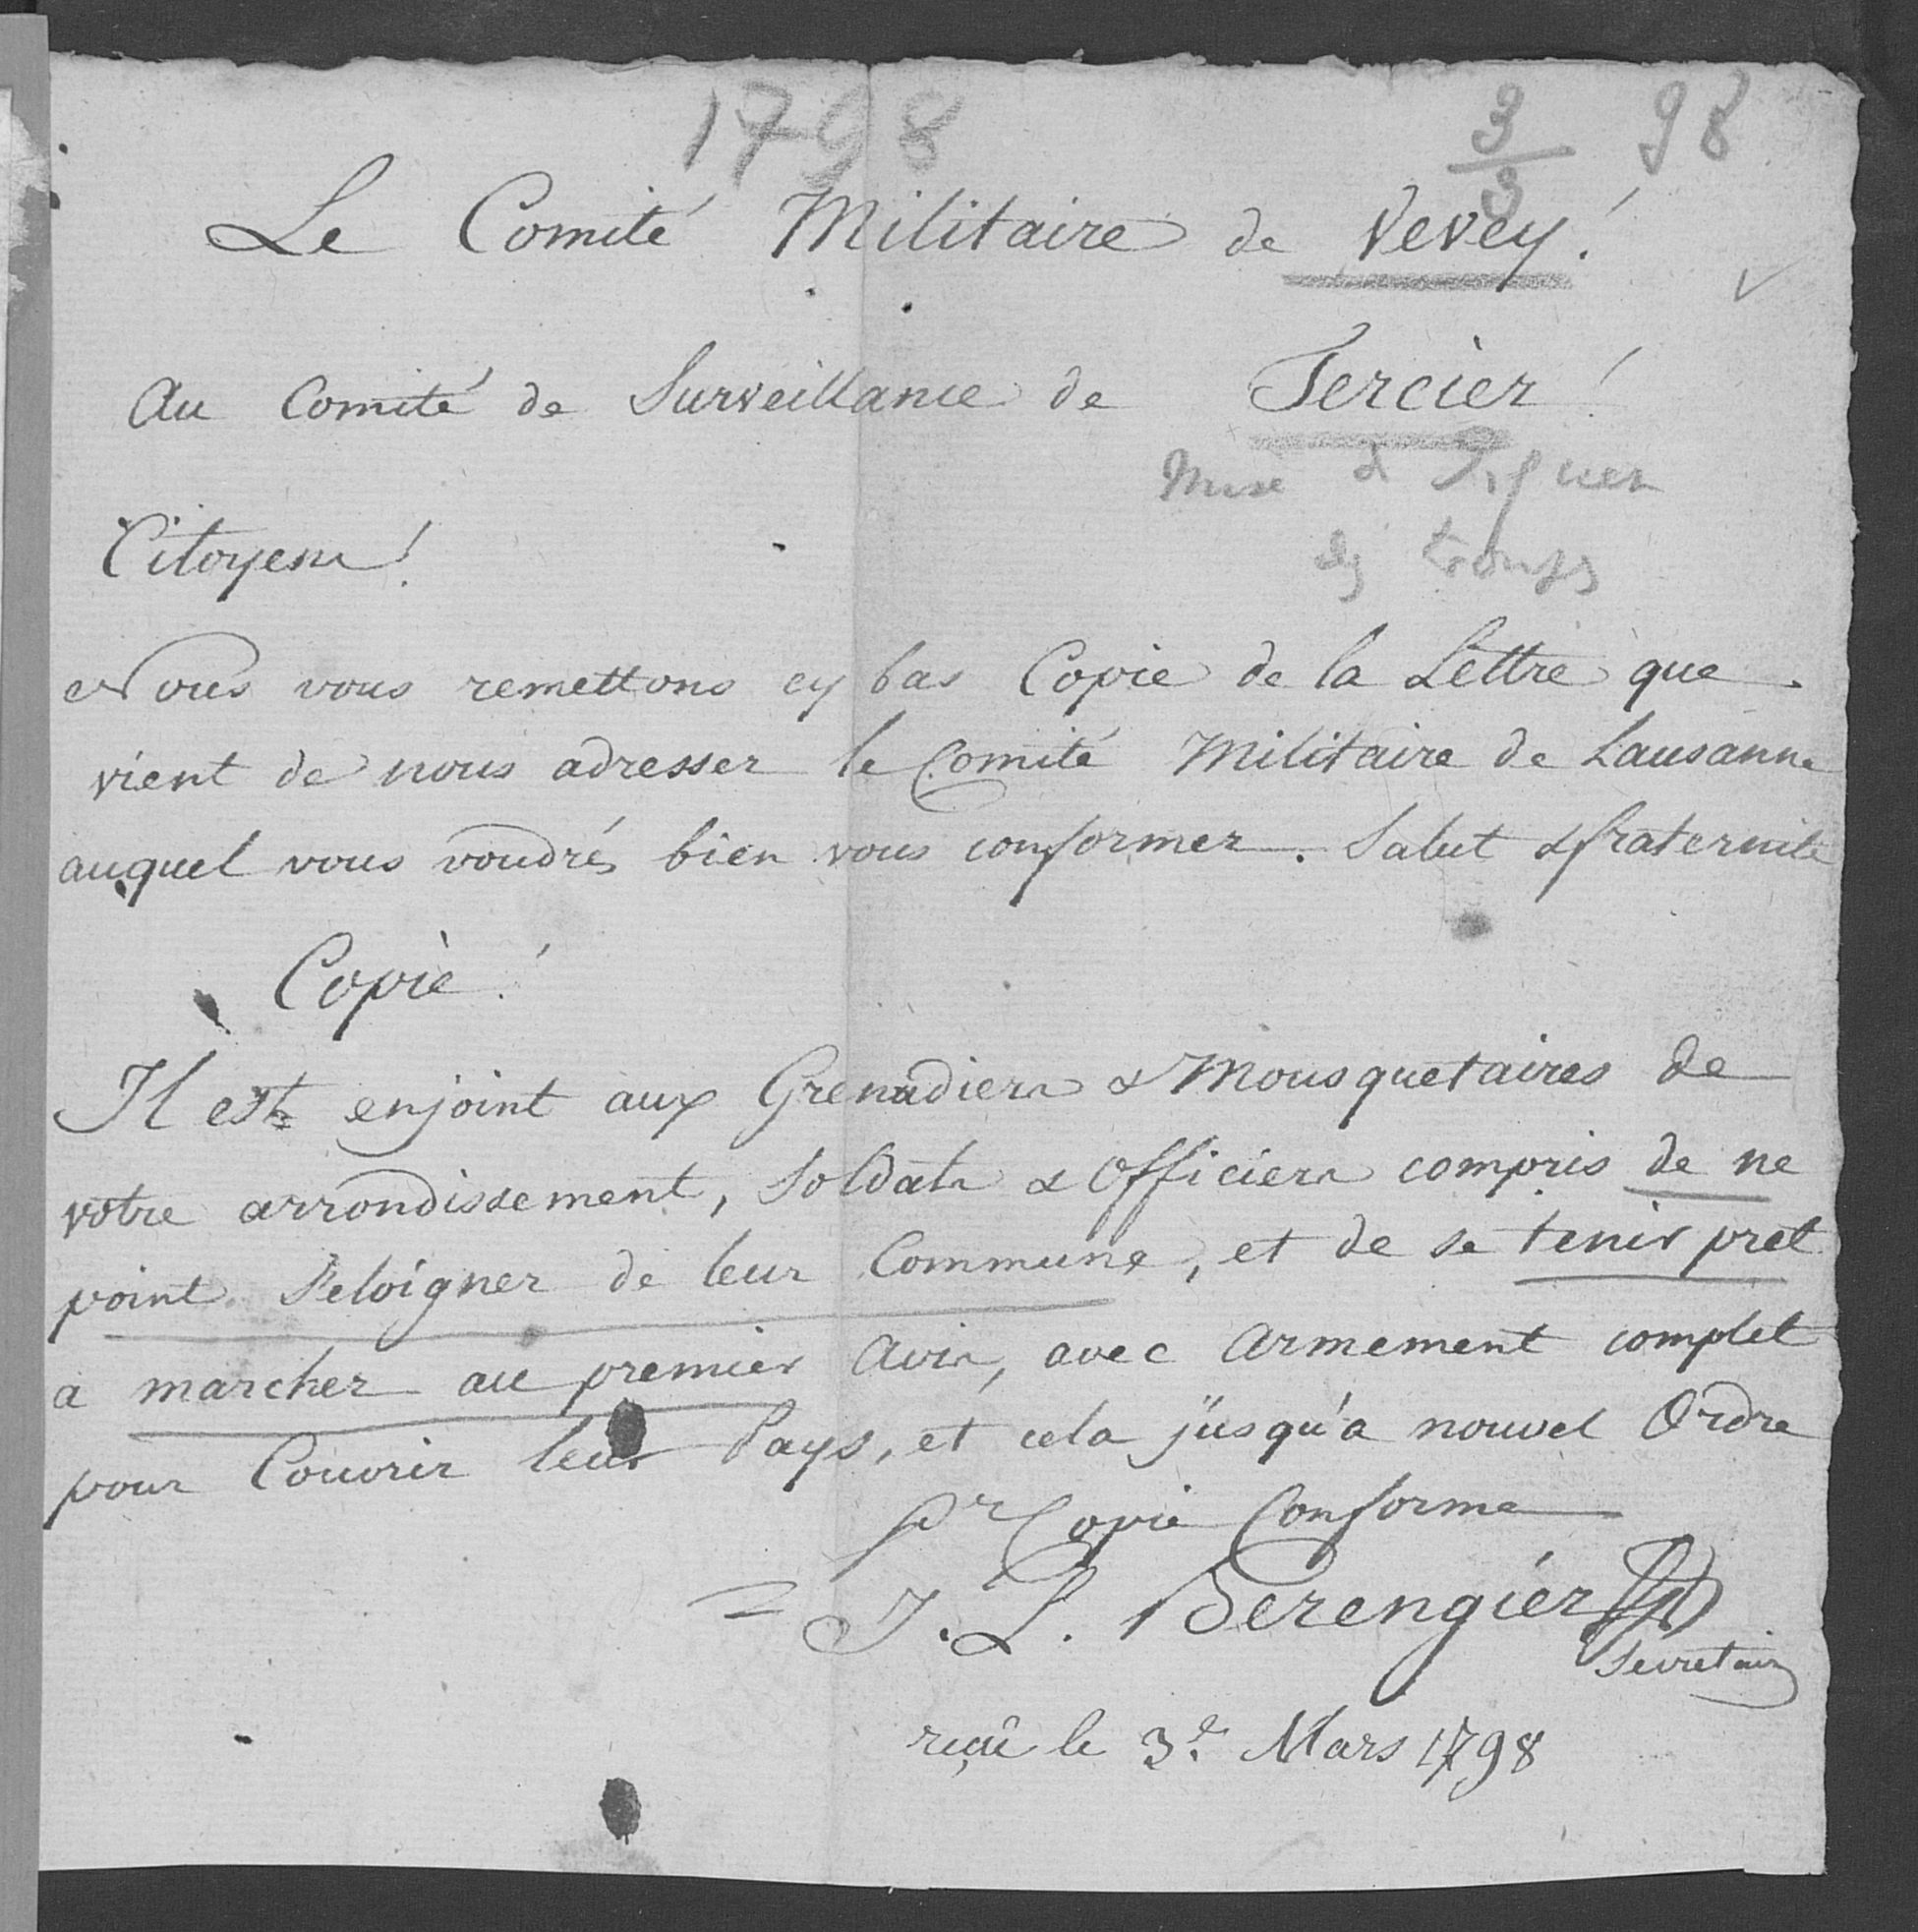 1798
3/3 98
Le Comité Militaire de Vevey!
Au Comité de Surveillance de Tercier!
Mise de Piquet
des troupes
Citoyens!
Nous vous remettons cy bas Copie de la Lettre que
vient de nous adresser le Comité Militaire de Lausanne
auquel vous voudrés bien vous conformer. Salut & fraternité
Copie!
Il est enjoint aux Grenadiers & Mousquetaires de
votre arrondissement, Soldats & Officiers compris de ne
point S'eloigner de leur Commune, et de se tenir pret
a marcher au premier Avis, avec Armement complet
pour Couvrir leur Pays, et cela jusqu'a nouvel Ordre
Pr Copie Conforme
J. L. Berengier
Secretaire
reçû le 3e. Mars 1798